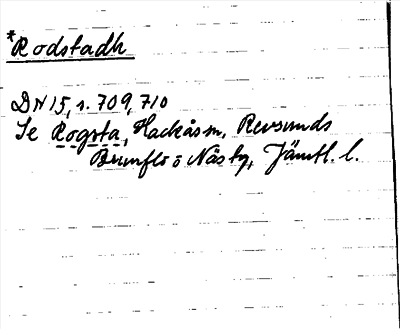 *Rodstadh
DN 15, s. 709, 710
Se Rogsta, Hackås sn, Revsunds
Brunflo o Näs tg, Jämtl. l.